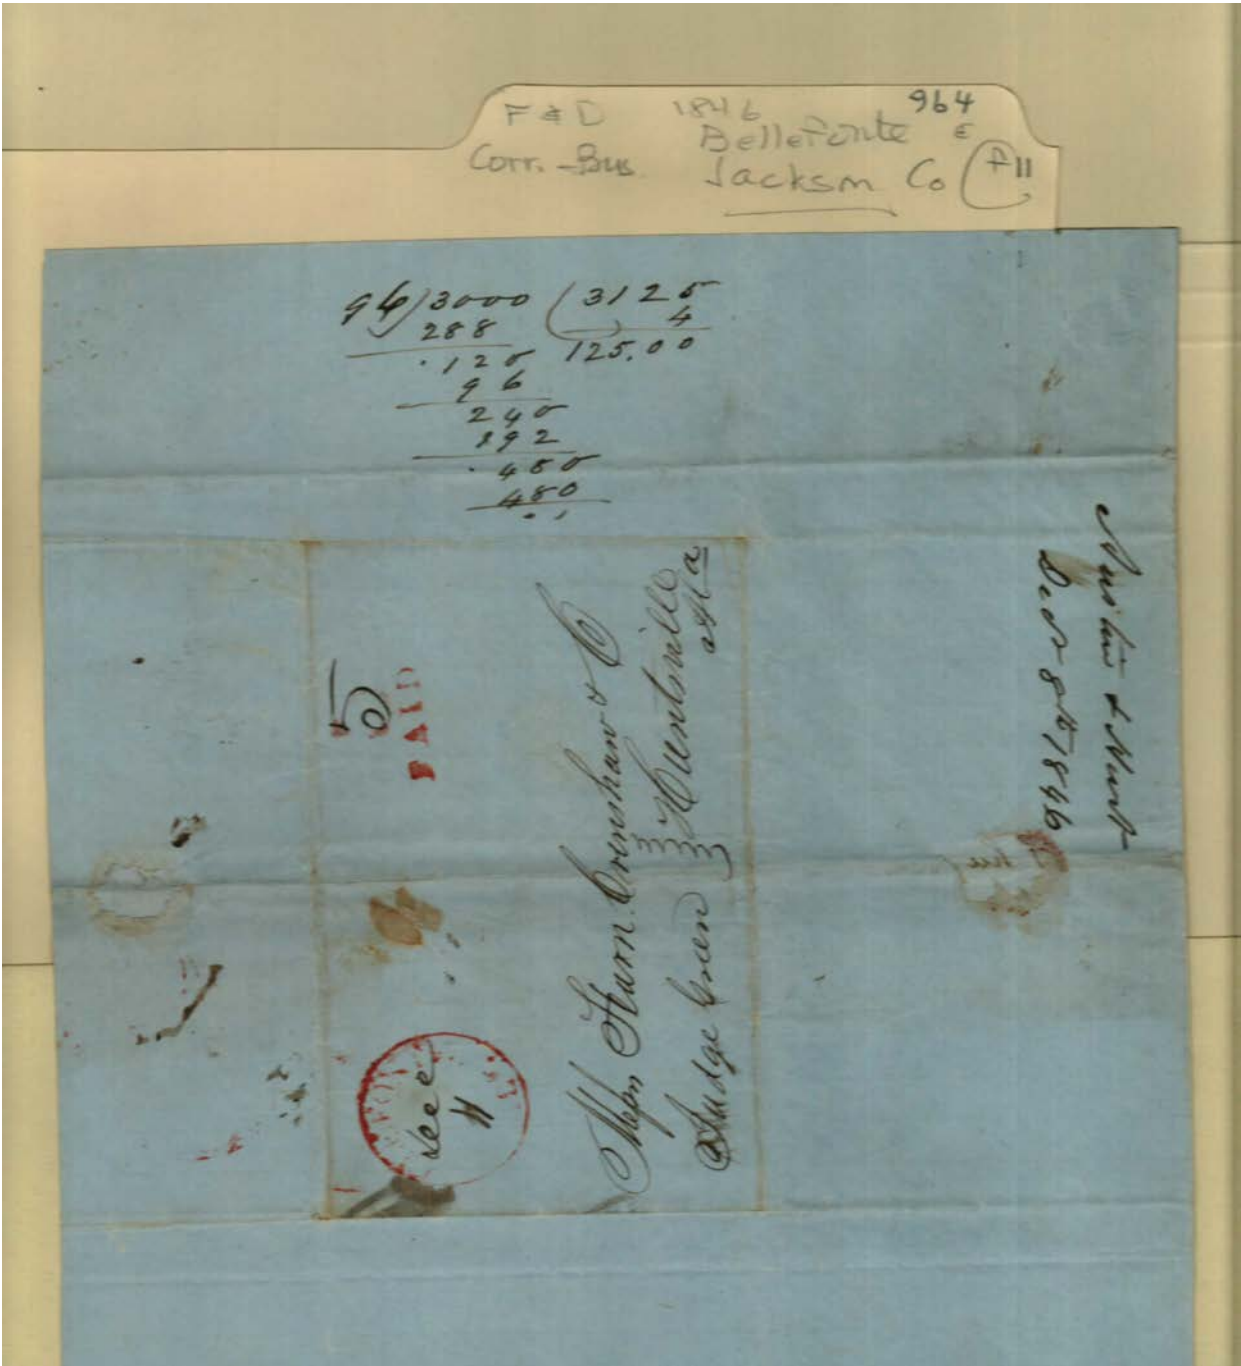 F & D 1846 964
Corr. - Bus. Bellefonte E
Jackson Co P11
96)3000(3125
288 4
120 125.00
96
240
192
480
480
5
PAID
Dec
11
Fearn Crenshaw & C
Huntsville
Ala
Judge Green
& Hunt
Dec 8th 1846